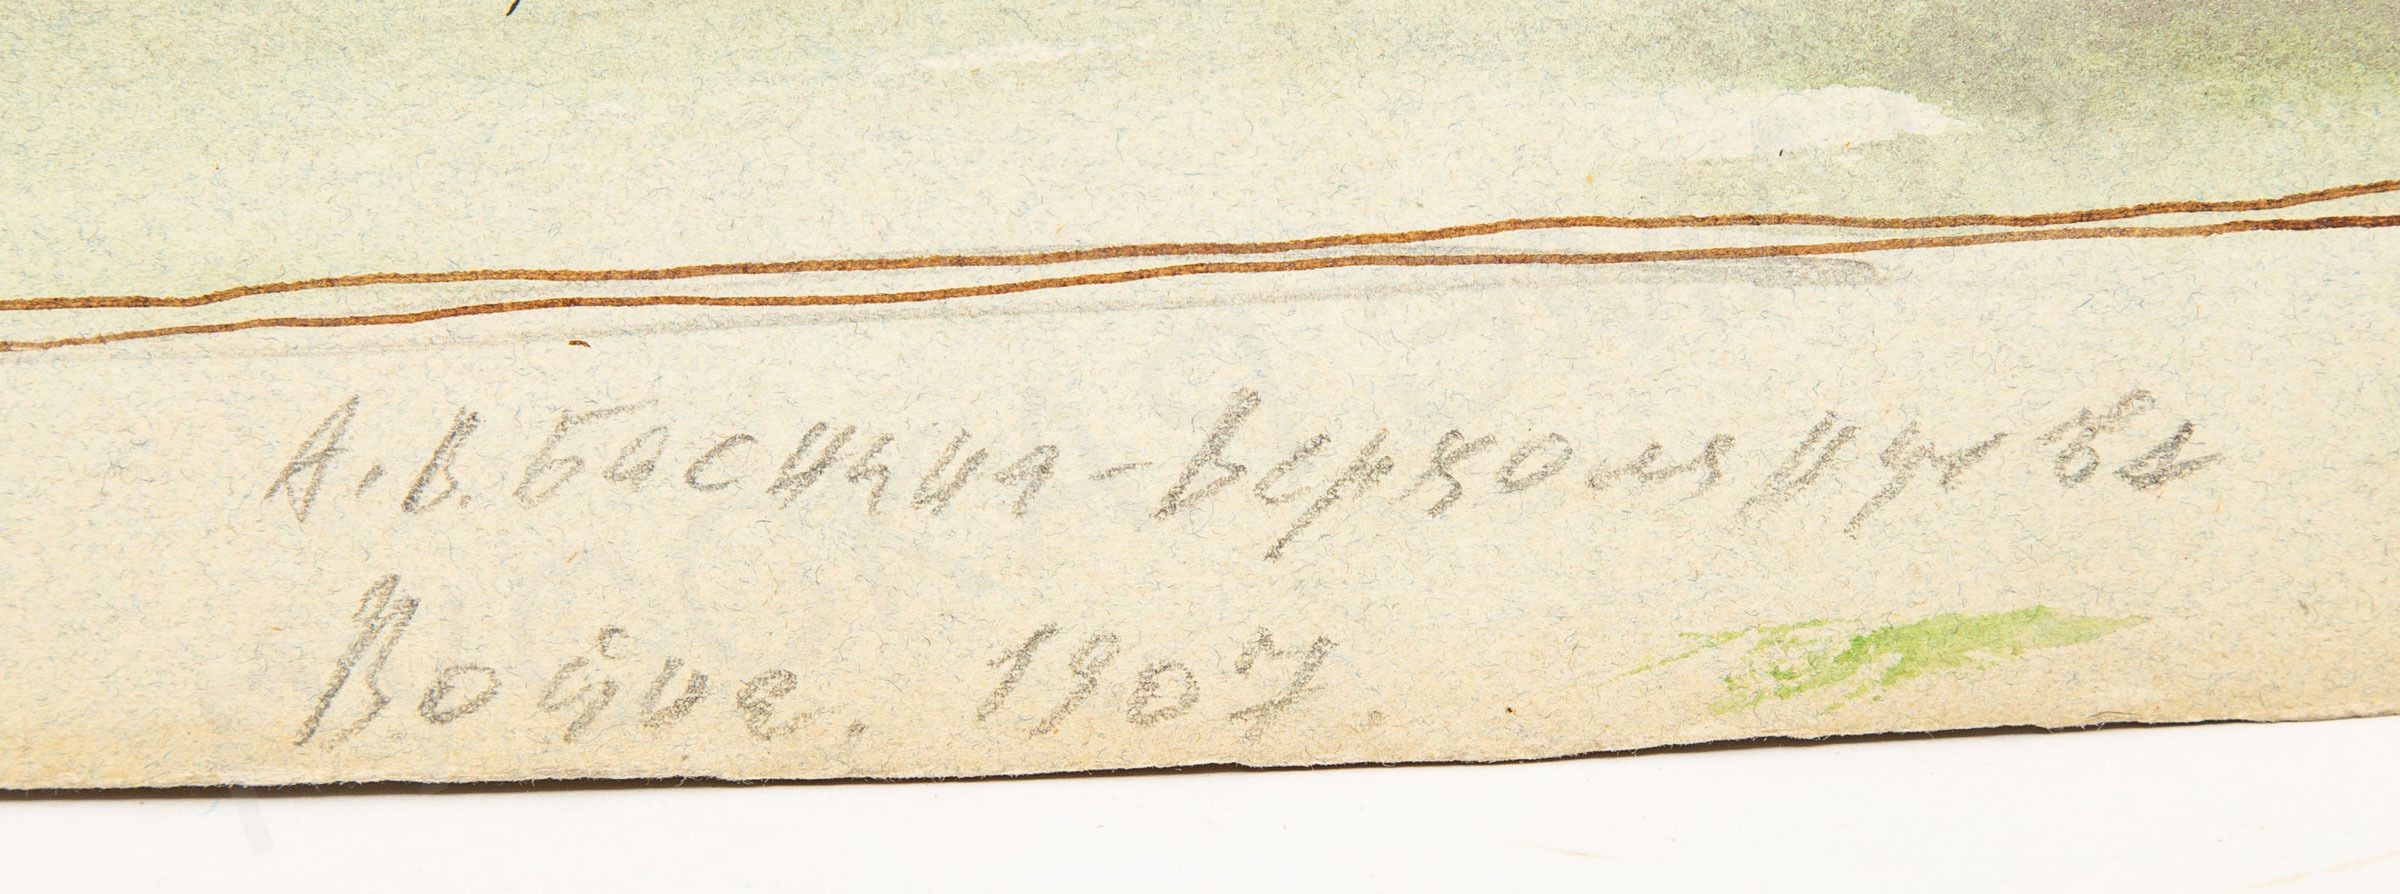 А. В. Баснина-Верхолянцева
Война. 1907.